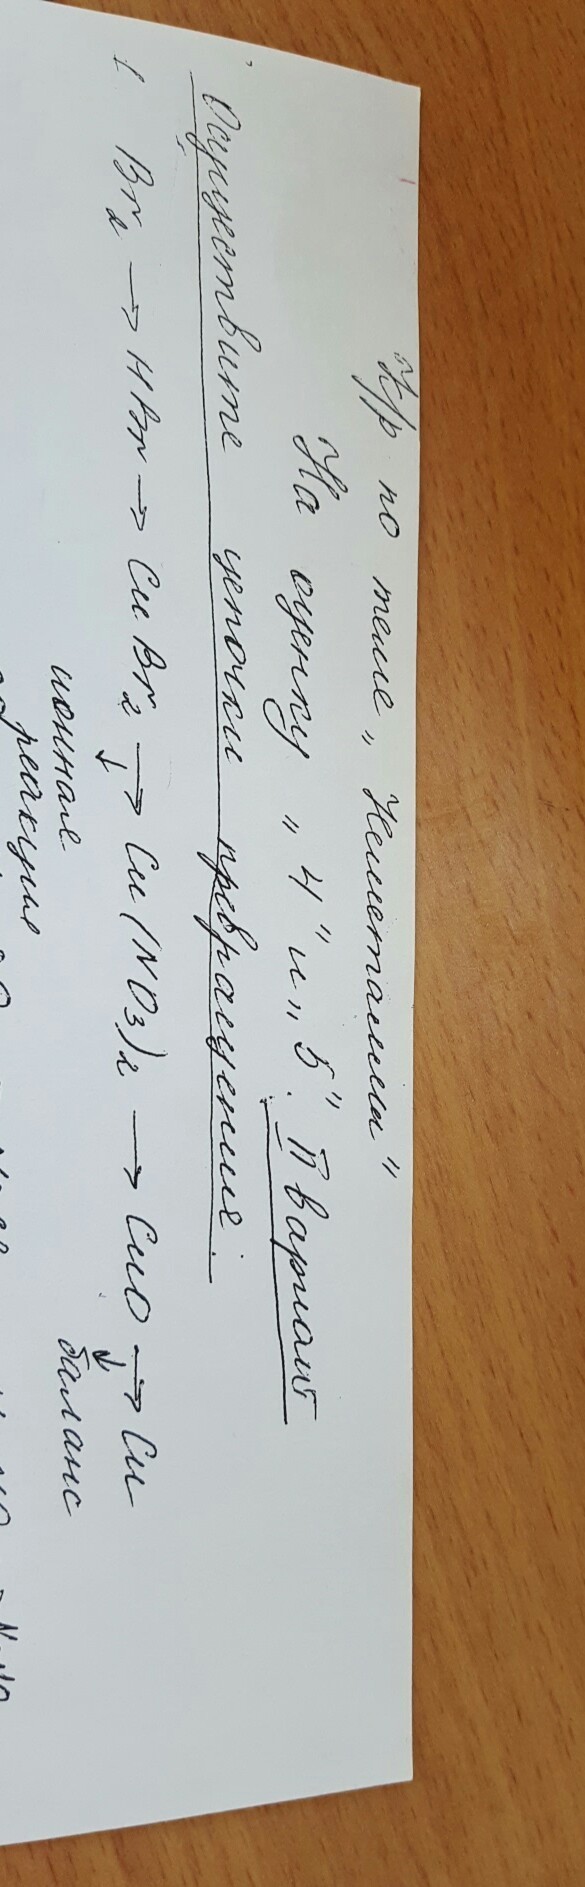 К/р по теме „Неметаллы"
На оценку „4" и „5". II вариант
Осуществите цепочки превращение:
1 Br₂ → HBr → CuBr₂ → Cu(NO₃)₂ → CuO → Cu
ионная баланс
реакция